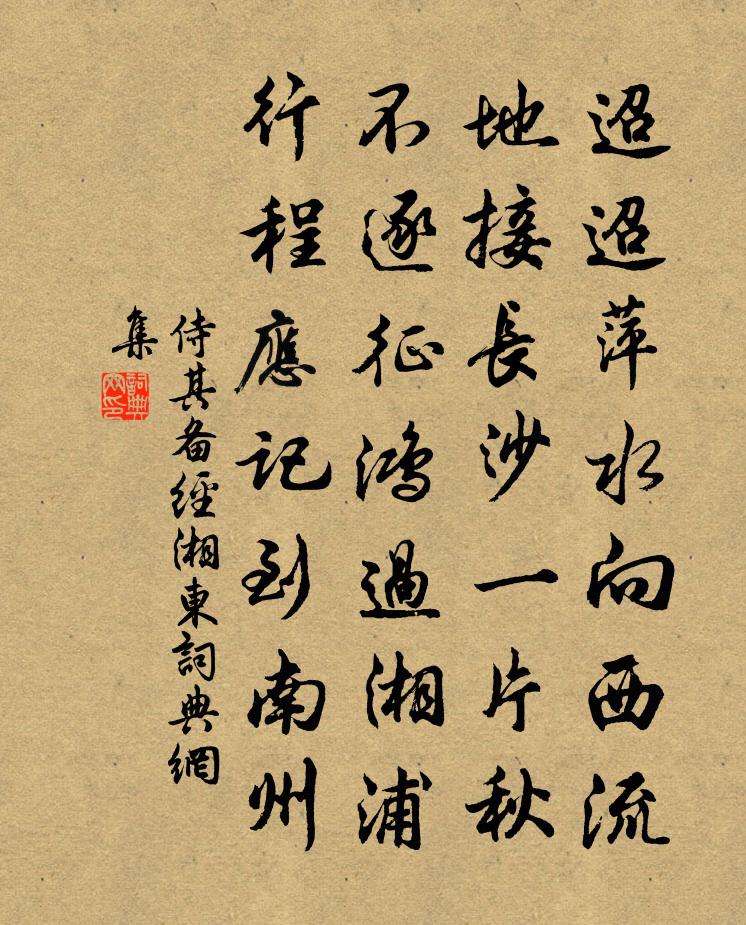 迢迢萍水向西流
地接長沙一片秋
不逐征鴻過湘浦
行程應記到南州
侍其备經湘東詞典網
集
詞典網印